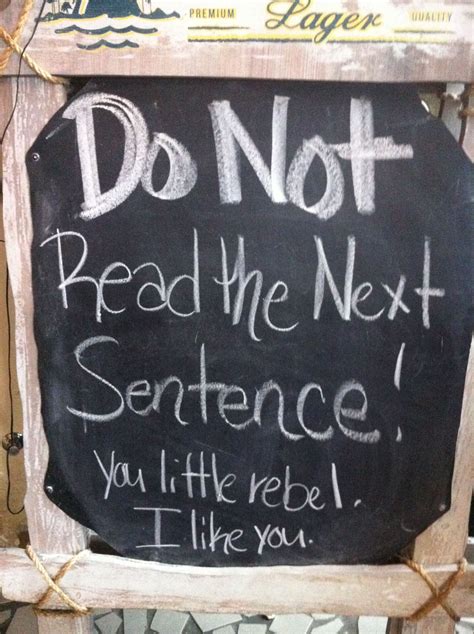 PREMIUM Lager QUALITY
Do Not
Read the Next
Sentence!
You little rebel.
I like you.